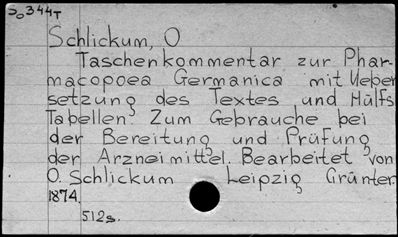 So 344T
Schlickum, O
Taschenkommentar zur Phar-
macopoea Germanica mit Ueber
setzung des Textes und Hülfs
Tabellen. Zum Gebrauche bei
der Bereitung und Prüfung
der Arzneimittel. Bearbeitet von
O. Schlickum Leipzig Günter.
1874.
512s.